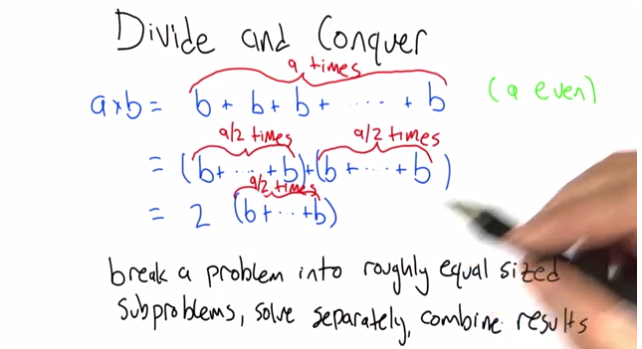 Divide and Conquer
a times
a×b = b + b + b + ···· + b (a even)
a/2 times a/2 times
= (b+ ··· +b)+(b + ··· + b)
a/2 times
= 2 (b+ ·· +b)
break a problem into roughly equal sized
subproblems, solve separately, combine results